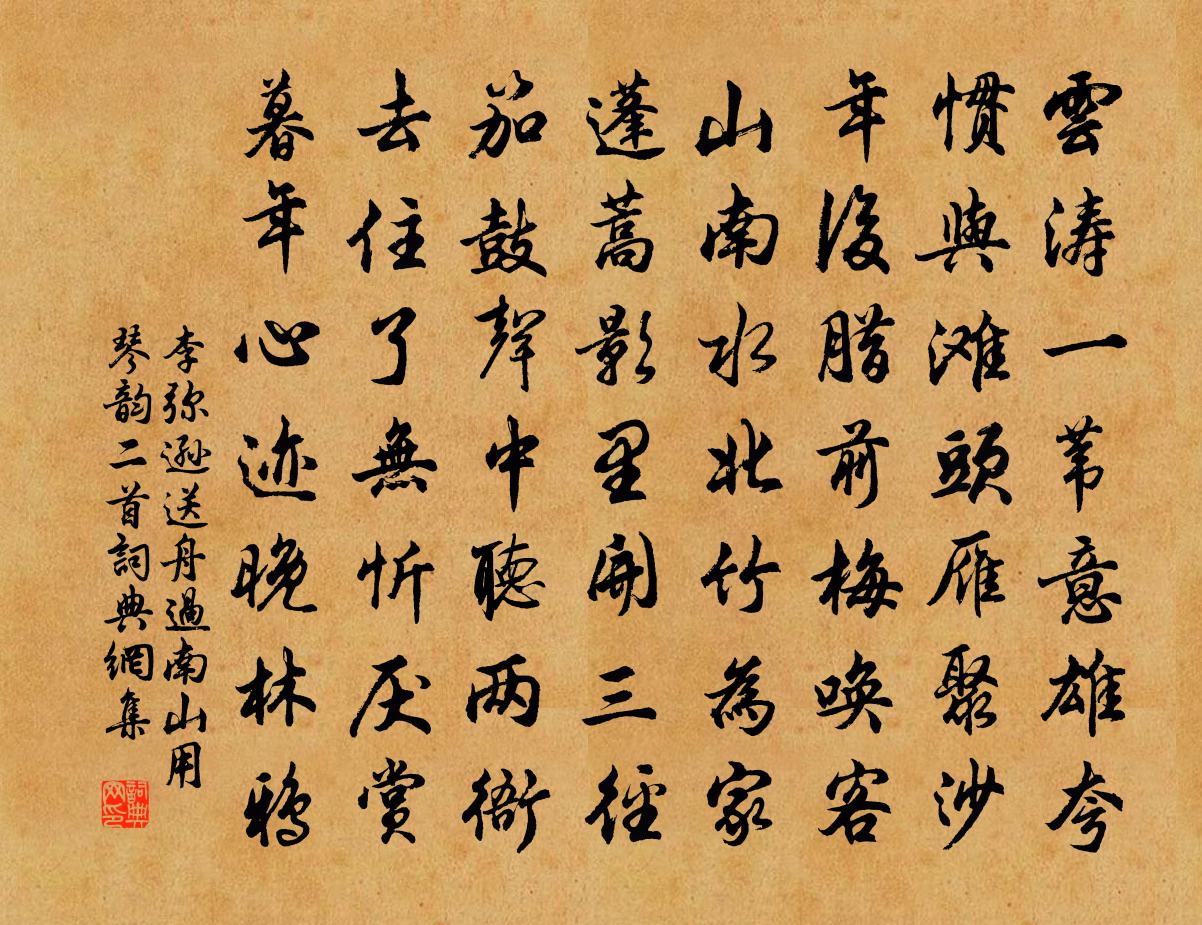 雲濤一葦意雄夸
慣與滩頭雁聚沙
年後腊前梅喚客
山南水北竹為家
蓬蒿影里開三徑
笳鼓聲中聽两衙
去住了無忻厌賞
暮年心迹晚林鴉
李弥遜送舟過南山用
琴韵二首詞典網集
詞典
网印